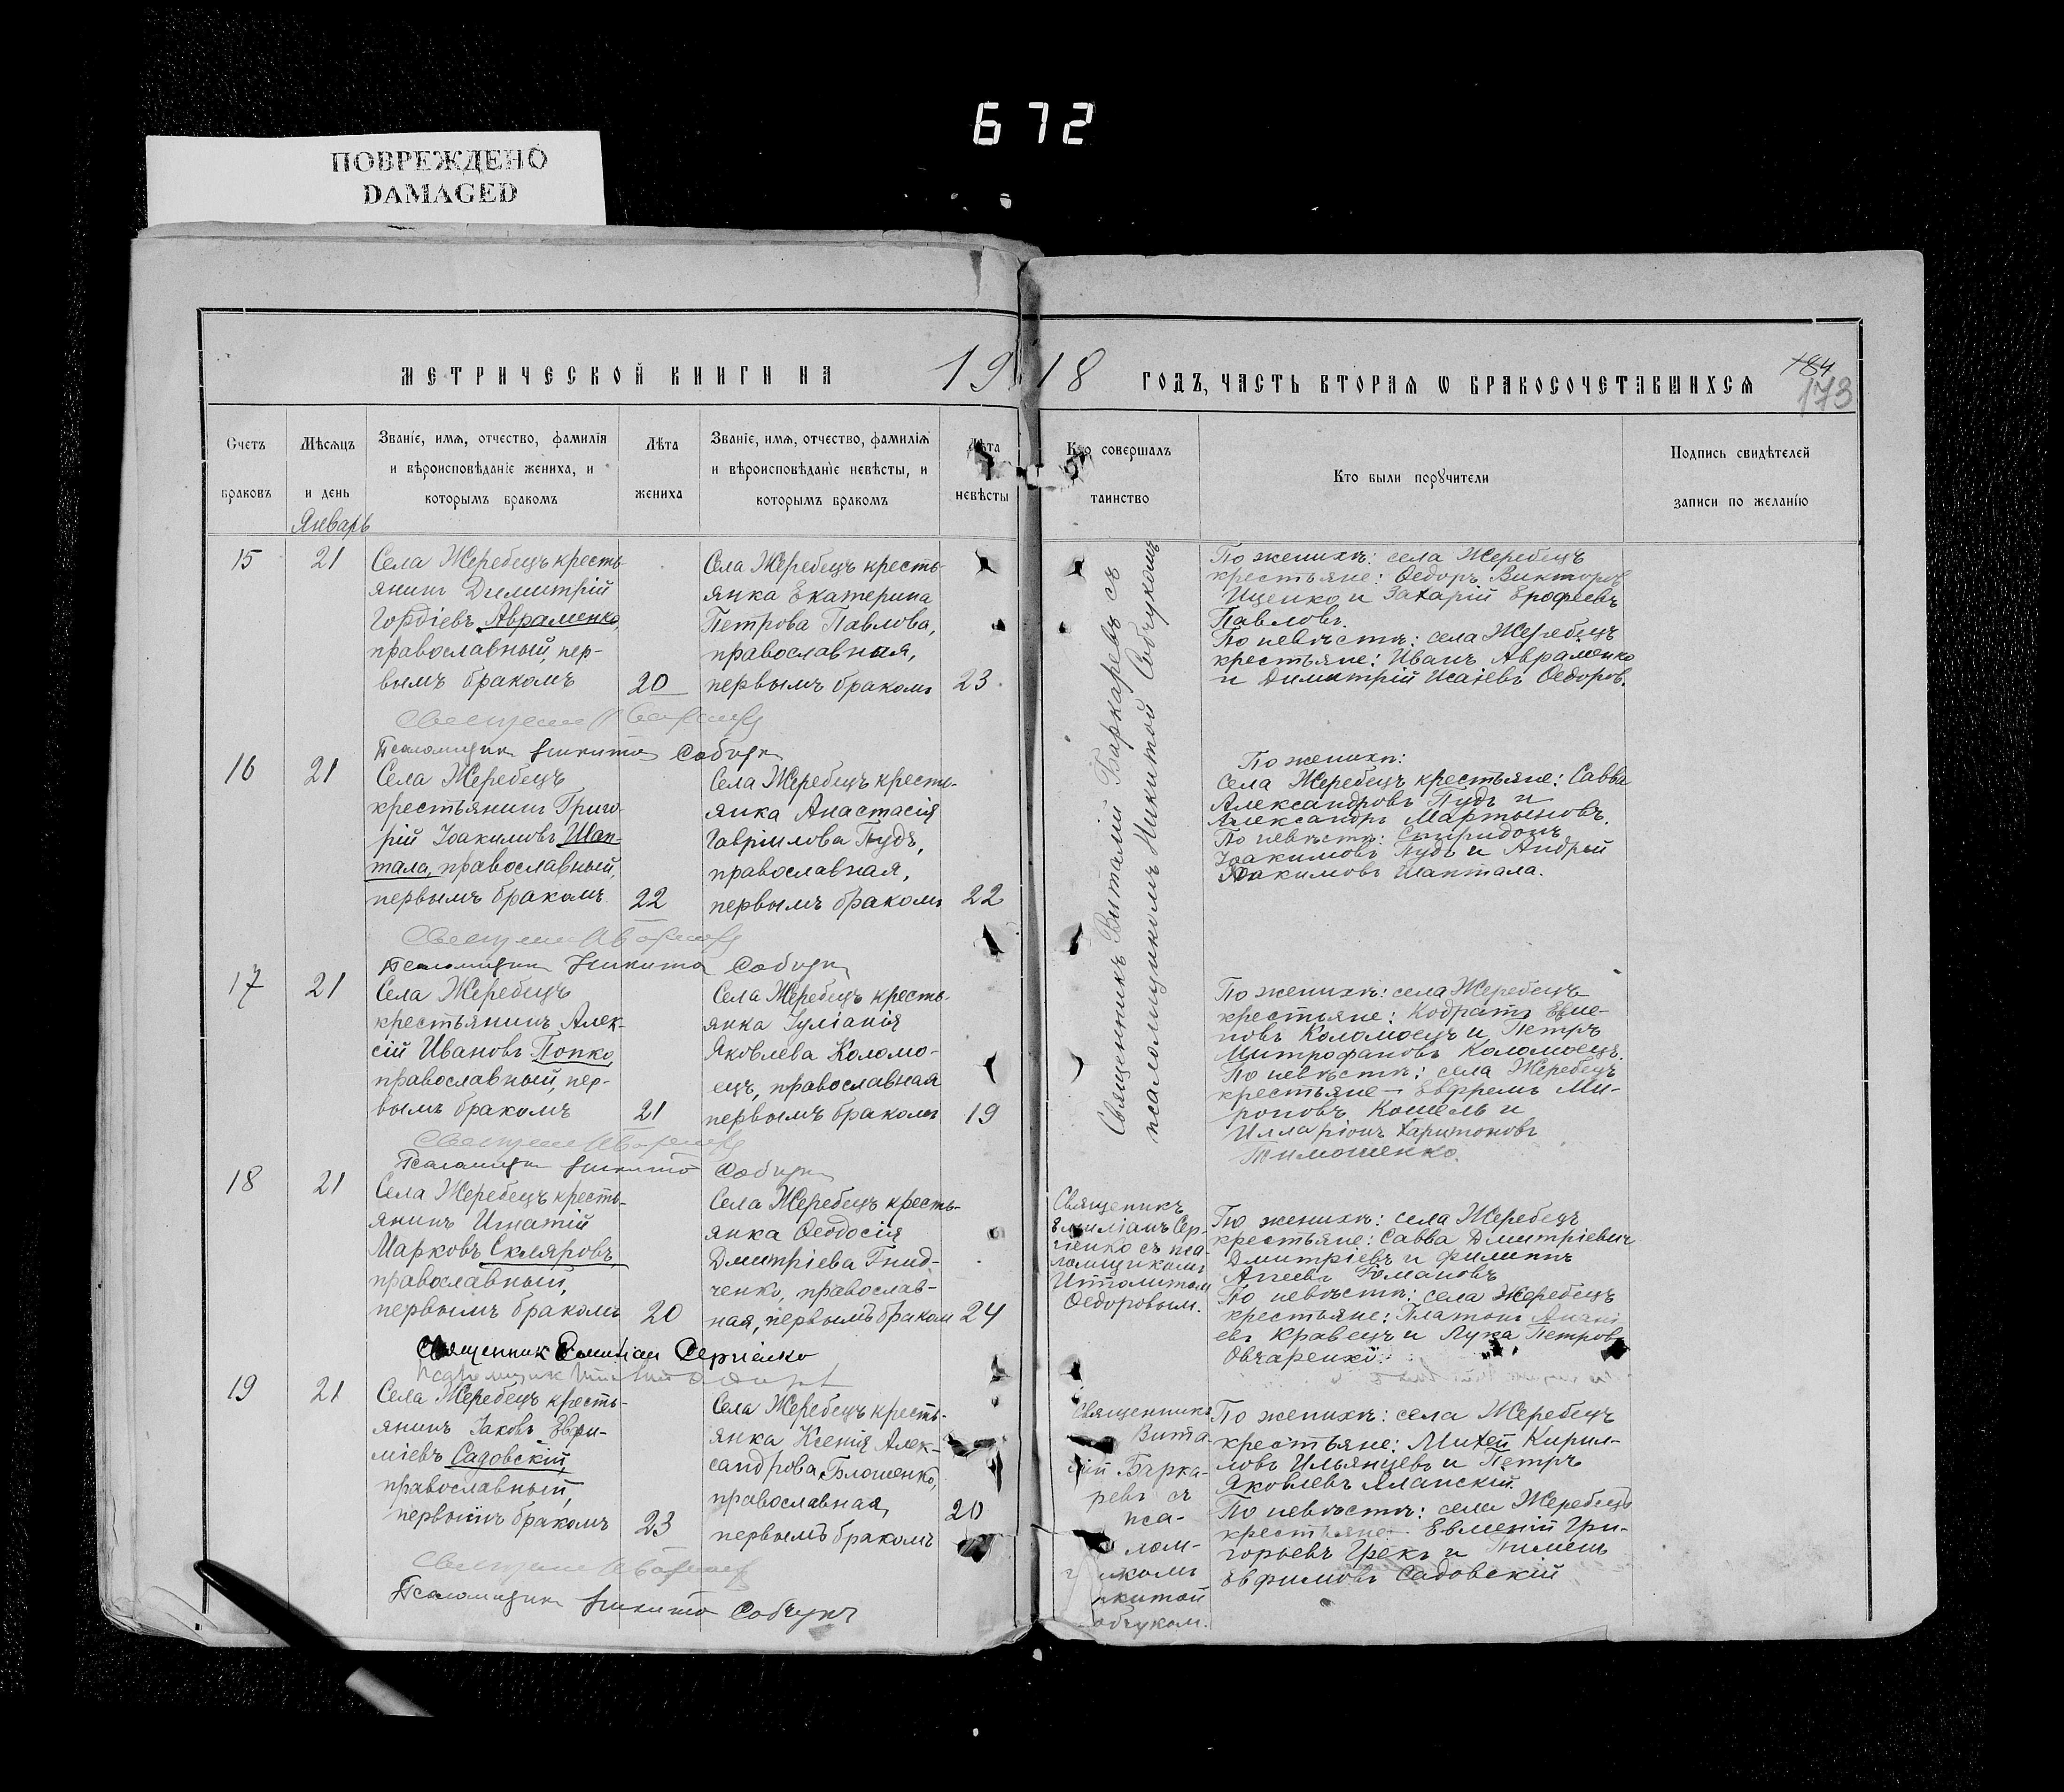 672
ПОВРЕЖДЕНО
DAMAGED
МЕТРИЧЕСКОЙ КНИГИ НА 1918 ГОДЪ, ЧАСТЬ ВТОРАЯ Ѡ БРАКОСОЧЕТАВШИХСЯ
184
173
Счетъ
браковъ
Мѣсяцъ
и день
Январь
Званіе, имя, отчество, фамилія
и вѣроисповѣданіе жениха, и
которымъ бракомъ
Лѣта
жениха
Званіе, имя, отчество, фамилія
и вѣроисповѣданіе невѣсты, и
которымъ бракомъ
Лѣта
невѣсты
Кто совершалъ
таинство
Кто были поручители
Подпись свидѣтелей
записи по желанію
15
21
Села Жеребецъ кресть-
янинъ Димитрій
Гордіевъ Авраменко,
православный, пер-
вымъ бракомъ
20
Села Жеребецъ кресть-
янка Екатерина
Петрова Павлова,
православная,
первымъ бракомъ
23
Священникъ Виталій Баркаревъ съ
псаломщикомъ Никитой Собчукомъ
По женихѣ: села Жеребецъ
крестьяне: Ѳедоръ Викторовъ
Ищенко и Захарій Ерофеевъ
Павловъ.
По невѣстѣ: села Жеребецъ
крестьяне: Иванъ Авраменко
и Димитрій Исаіевъ Ѳедоров.
Псаломщикъ Никита Собчукъ
16
21
Села Жеребецъ
крестьянинъ Григо-
рій Іоакимовъ Шап-
тала, православный,
первымъ бракомъ
22
Села Жеребецъ кресть-
янка Анастасія
Гавріилова Пудъ,
православная,
первымъ бракомъ
22
По женихѣ:
Села Жеребецъ крестьяне: Савва
Александровъ Пудъ и
Александръ Мартыновъ.
По невѣстѣ: Спиридонъ
Іоакимовъ Пудъ и Андрей
Іоакимовъ Шаптала.
Псаломщикъ Никита Собчукъ
17
21
Села Жеребецъ
крестьянинъ Алек-
сій Ивановъ Попко,
православный, пер-
вымъ бракомъ
21
Села Жеребецъ кресть-
янка Іуліанія
Яковлева Коломо-
ецъ, православная
первымъ бракомъ
19
По женихѣ: села Жеребецъ
крестьяне: Кодратъ
Коломоецъ и Петръ
Митрофановъ Коломоецъ.
По невѣстѣ: села Жеребецъ
крестьяне - Ефремъ Ми-
роновъ Кошель и
Илларіонъ Харитоновъ
Тимошенко.
Псаломщикъ Никита Собчукъ
18
21
Села Жеребецъ кресть-
янинъ Игнатій
Марковъ Скляровъ,
православный,
первымъ бракомъ
20
Села Жеребецъ кресть-
янка Ѳеодосія
Дмитріева Гнид-
ченко, православ-
ная, первымъ браком
24
Священикъ
Емиліанъ Сер-
гіенко съ пса-
ломщикомъ
Ипполитом
Ѳедоровым.
По женихѣ: села Жеребецъ
крестьяне: Савва Дмитріевич
Дмитріевъ и Филиппъ
Агеевъ Романовъ
По невѣстѣ: села Жеребецъ
крестьяне: Платонъ
Кравецъ и Лука Петровъ
Овчаренко.
Священник Емиліан Сергіенко
19
21
Села Жеребецъ кресть-
янинъ Іаковъ Евфи-
міевъ Садовскій,
православный,
первымъ бракомъ
23
Села Жеребецъ кресть-
янка Ксенія Алек-
сандрова Блошенко,
православная,
первымъ бракомъ
20
Священникъ
Вита-
лій Барка-
ревъ съ
пса-
лом-
икомъ
икитой
обчуком.
По женихѣ: села Жеребецъ
крестьяне: Михей Кирил-
ловъ Ильянцевъ и Петръ
Яковлевъ Яланскій.
По невѣстѣ: села Жеребецъ
крестьяне - Евменій Гри-
горьевъ Грекъ и Пименъ
Евфимовъ Садовскій
Псаломщикъ Никита Собчукъ